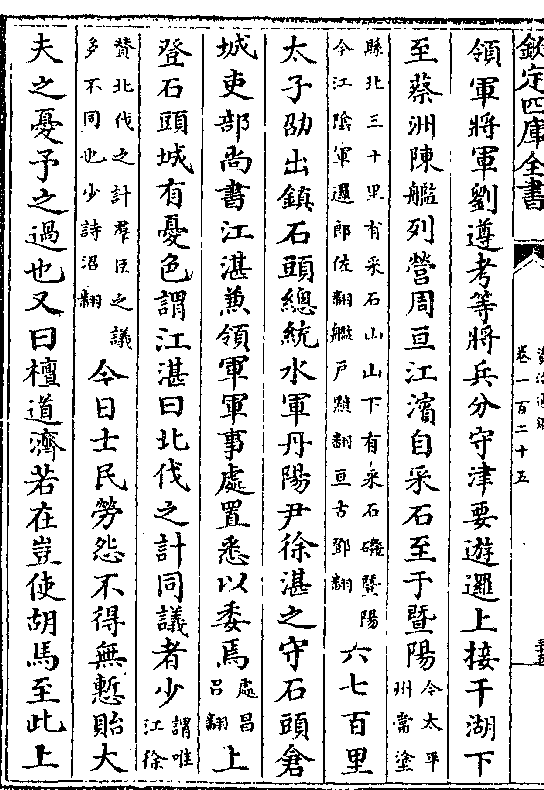 欽定四庫全書
資治通鑑
卷一百二十五
領軍將軍劉遵考等將兵分守津要遊邏上接于湖下
至蔡洲陳艦列營周亘江濱自采石至于暨陽今太平州當塗
縣北三十里有采石山山下有采石磯暨陽今江陰軍邏郎佐翻艦戸黯翻亘古鄧翻六七百里
太子劭出鎮石頭總統水軍丹陽尹徐湛之守石頭倉
城吏部尚書江湛兼領軍軍事處置悉以委焉處昌呂翻上
登石頭城有憂色謂江湛曰北伐之計同議者少謂唯江徐
贊北伐之計羣臣之議多不同也少詩沼翻今日士民勞怨不得無慙貽大
夫之憂予之過也又曰檀道濟若在豈使胡馬至此上